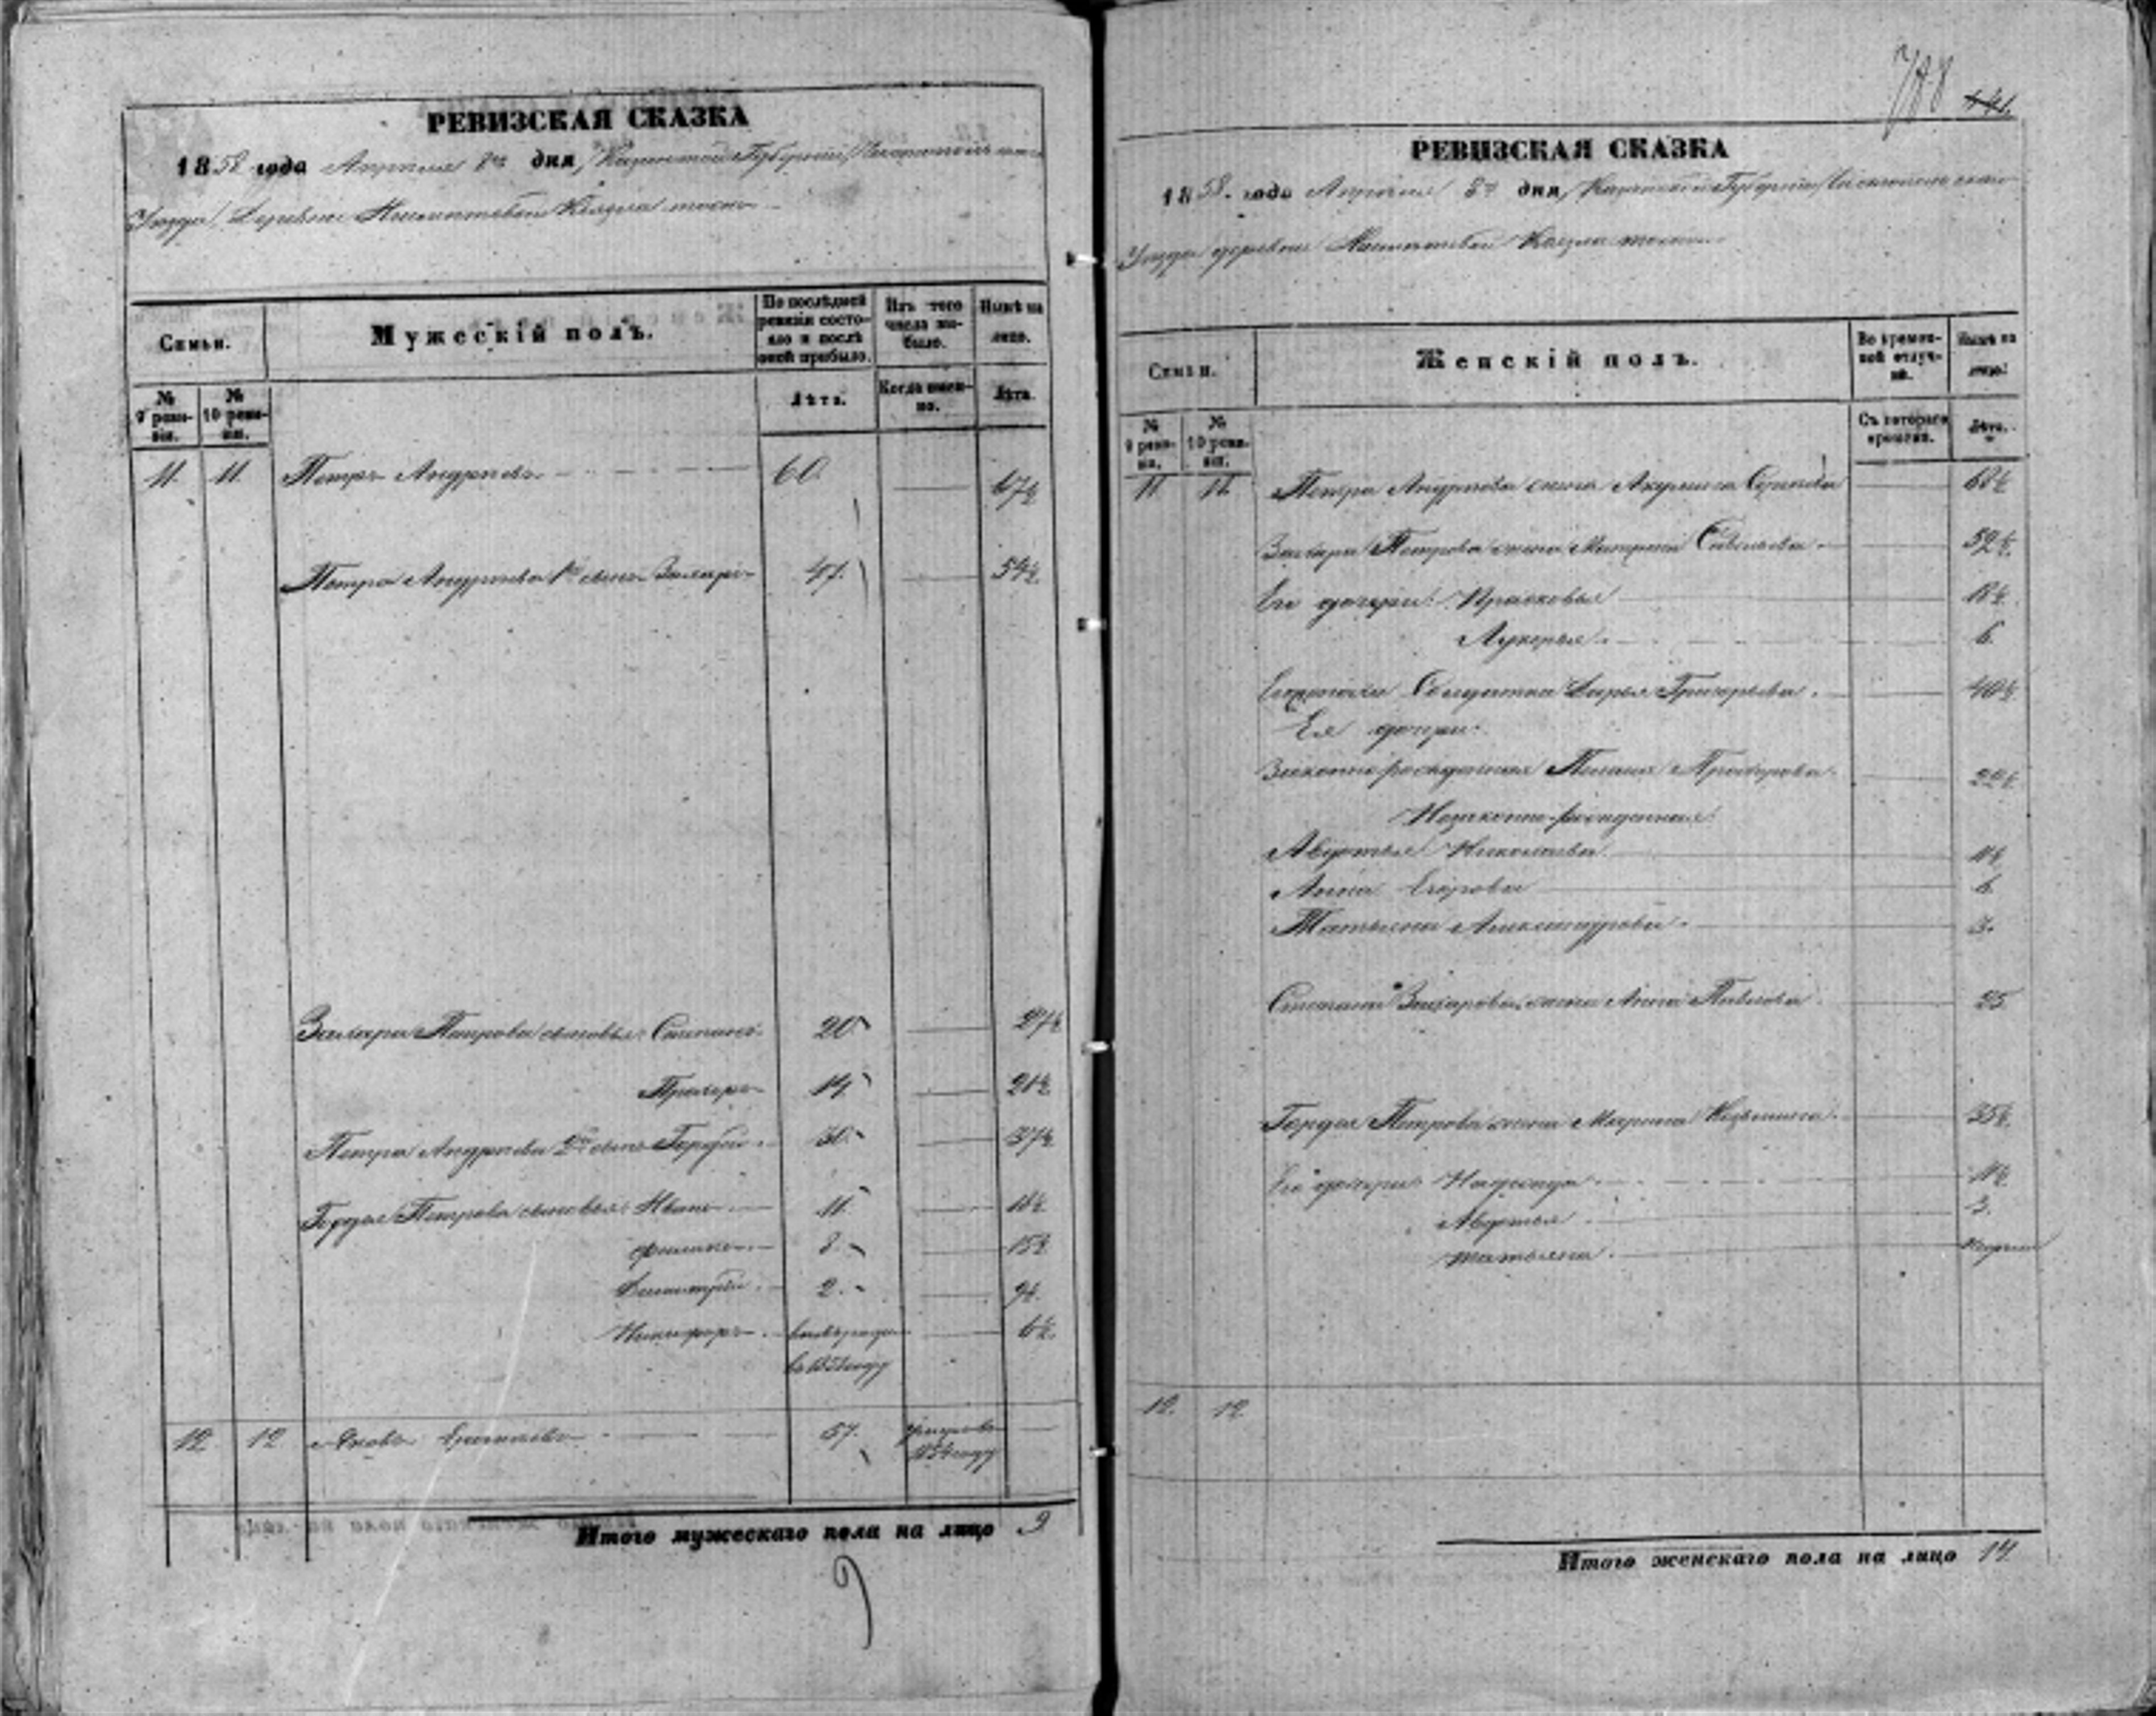 РЕВИЗСКАЯ СКАЗКА
1858 года Апреля 8го дня, Казанской Губернии
Уезда, Деревни
Семьи.
Мужескій полъ.
По послѣдней ревизіи состояло и послѣ оной прибыло.
Изъ того числа выбыло.
Нынѣ на лицо.
№ 9 ревизіи.
№ 10 ревизіи.
Лѣта.
Когда именно.
Лѣта.
11. 11. Петръ Андреевъ 60. 67½
Петра Андреева 1й сынъ Захаръ 47. 54½
Захара Петрова сыновья: Степанъ 20 27½
Прохоръ 14 21½
Петра Андреева 2й сынъ Гордей 30. 37½
Гордея Петрова сыновья: Иванъ 11 18½
8. 15½
Дмитрій 2. 9½
Никифоръ 6½
въ 1851 году
12 12 Яковъ 57.
1854 году
Итого мужескаго пола на лицо 9
9
788
141.
РЕВИЗСКАЯ СКАЗКА
1858. года Апреля 8го дня, Казанской Губерніи
Уезда деревни
Семьи.
Женскій полъ.
Во временной отлучкѣ.
Нынѣ на лицо.
№ 9 ревизіи.
№ 10 ревизіи.
Съ котораго времени.
Лѣта.
11 11. Петра Андреева жена Акулина 68½
Захара Петрова жена Матрена Савельева 52½
Его дочери: Прасковья 18½
Лукерья 6
Солдатка Дарья Григорьева 40½
Ея дочери:
Законно рожденная Прохорова 22½
Незаконно-рожденныя:
Авдотья Николаева 11½
Анна Егорова 6
Татьяна Александрова 3.
Степана Захарова жена Анна Павлова 25
Гордея Петрова жена Марина 35½
Его дочери: Надежда 11½
Авдотья 3.
Татьяна
12. 12
Итого женскаго пола на лицо 14